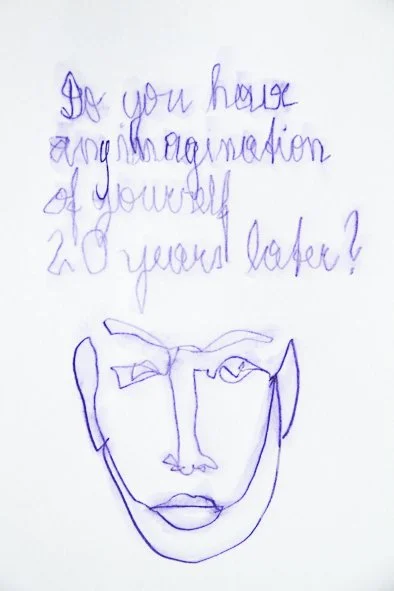 Do you have
any imagination
of yourself
20 years later?